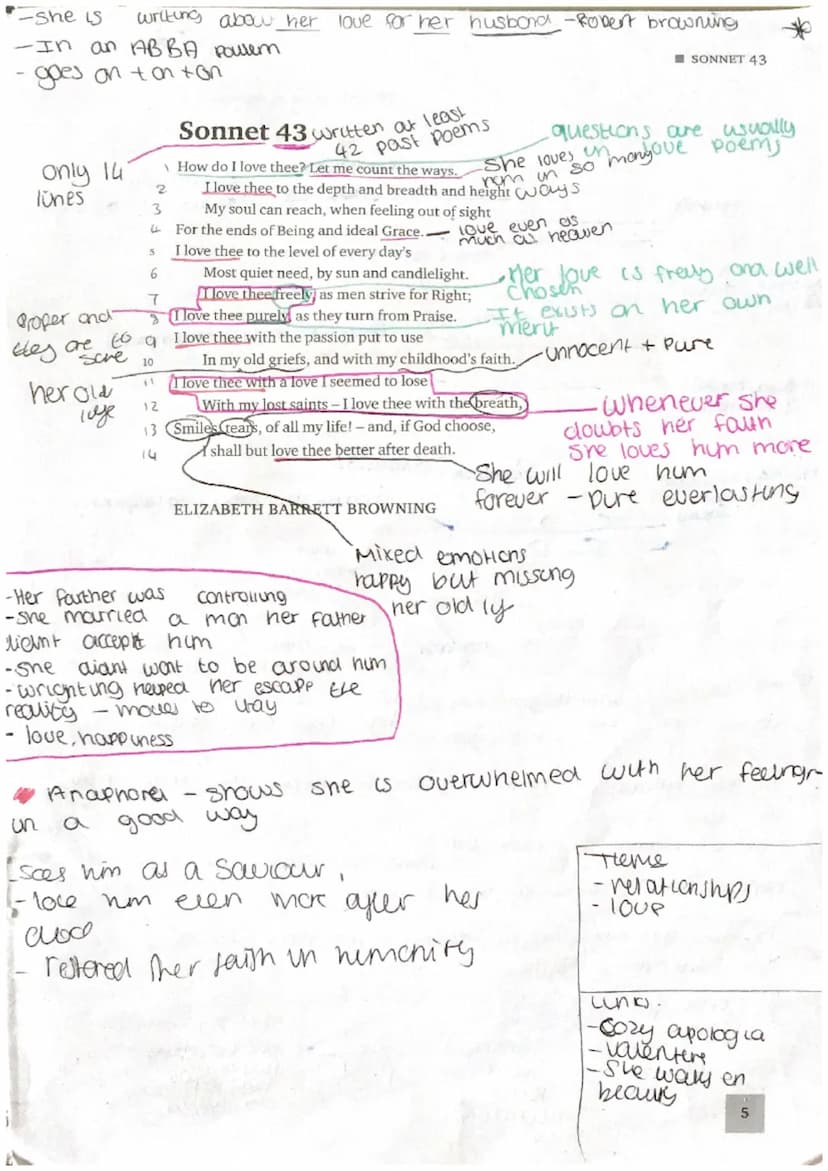 -She is writing about her love for her husband -Robert browning
-In an ABBA pattern
- goes on + on + on
SONNET 43
Sonnet 43
written at least
42 past poems
questions are usually
in love poems
only 14
lines
1 How do I love thee? Let me count the ways.
She loves
him in so many
ways
2 I love thee to the depth and breadth and height
3 My soul can reach, when feeling out of sight
4 For the ends of Being and ideal Grace.
love even as
much as heaven
5 I love thee to the level of every day's
6 Most quiet need, by sun and candlelight.
Her love is freely and well
chosen
7 I love thee freely, as men strive for Right;
It exists on her own
merit
8 I love thee purely, as they turn from Praise.
proper and
they are to
9 I love thee with the passion put to use
10 In my old griefs, and with my childhood's faith.
innocent + pure
her old
life
11 I love thee with a love I seemed to lose
12 With my lost saints – I love thee with the breath,
whenever she
doubts her faith
she loves him more
13 Smiles, tears, of all my life! – and, if God choose,
14 I shall but love thee better after death.
She will love him
forever - pure everlasting
ELIZABETH BARRETT BROWNING
Mixed emotions
happy but missing
her old
-Her farther was controlling
-she married a man her father
didnt accept him
-she didnt want to be around him
-wrighting helped her escape the
reality - moves to itay
- love, happiness
Anaphora - shows she is overwhelmed with her feelings
in a good way
- Sees him as a saviour,
- love him even more after her
- restored her faith in humanity
Theme
- relationships
- love
Links:
-Cozy apologia
- Valentere
- She walks en
beauty
5